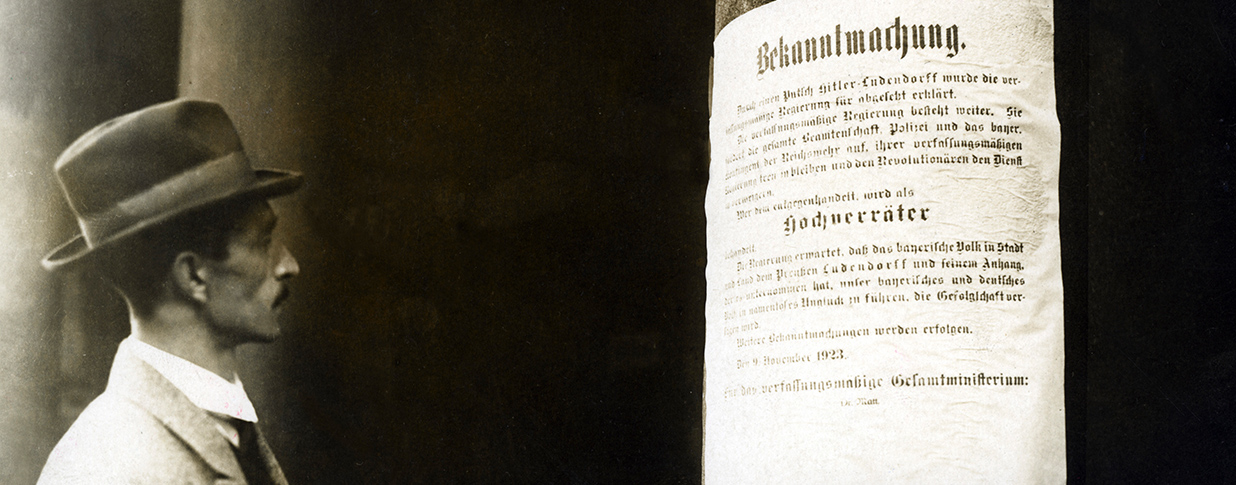 Bekanntmachung.
Durch einen Putsch Hitler-Ludendorff wurde die ver-
fassungsmäßige Regierung für abgesetzt erklärt.
Die verfassungsmäßige Regierung besteht weiter. Sie
fordert die gesamte Beamtenschaft, Polizei und das bayer.
Kontingent der Reichswehr auf, ihrer verfassungsmäßigen
Regierung treu zu bleiben und den Revolutionären den Dienst
zu verweigern.
Wer dem entgegenhandelt, wird als
Hochverräter
behandelt.
Die Regierung erwartet, daß das bayerische Volk in Stadt
und Land dem Preußen Ludendorff und seinem Anhang,
der es unternommen hat, unser bayerisches und deutsches
Volk in namenloses Unglück zu führen, die Gefolgschaft ver-
sagen wird.
Weitere Bekanntmachungen werden erfolgen.
Den 9. November 1923.
Für das verfassungsmäßige Gesamtministerium:
Dr. Matt.